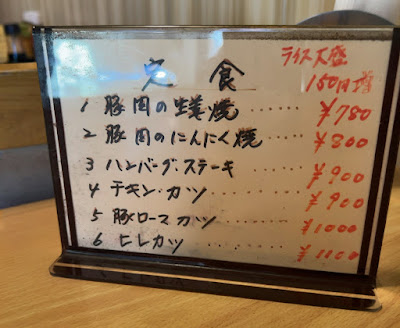 定食
ライス大盛
150円増
1 豚肉の生姜焼 ...... ¥780
2 豚肉のにんにく焼 ...... ¥800
3 ハンバーグ・ステーキ ¥900
4 チキン・カツ ........ ¥900
5 豚ロースカツ ........ ¥1000
6 ヒレカツ ........ ¥1100